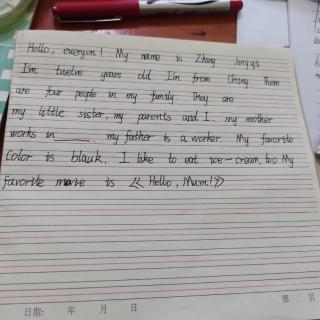 Hello, everyone! My name is Zhang Jingqi
I'm twelve years old I'm from China There
are four people in my family. They are
my little sister, my parents and I. my mother
works in ______, my father is a worker. My favorite
color is blauk, I like to eat ice-cream, too My
favorite movie is 《Hello, Mum!》
日期: 年 月 日
第 页